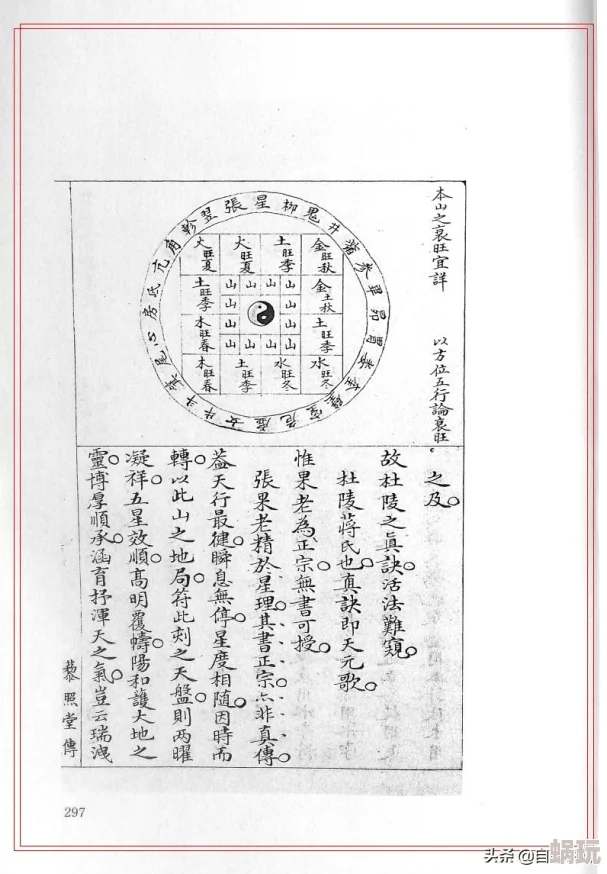 本山之衰旺宜詳
以方位五行論衰旺。
張星柳鬼井
參畢昴胃婁奎壁室危虛女牛斗箕尾心房氐亢角軫翌
火旺夏 火旺夏 土旺季 金旺秋
土旺季 山山山山 金土秋
木旺春 山 山 土旺季
木旺春 土旺季 水旺冬 水旺冬
之及。
故杜陵之真訣活法難窺。
杜陵蔣氏也真訣即天元歌。
惟果老為正宗無書可授。
張果老精於星理其書正宗亦非真傳。
蓋天行最健瞬息無停。星度相隨因時而
轉。以此山之地局。符此刻之天盤。則兩曜
凝祥。五星效順。高明覆幬。陽和護大地之
靈。博厚順承。涵育抒渾天之氣。豈云瑞洩
藜照堂傳
297
头条 @自
蜗玩